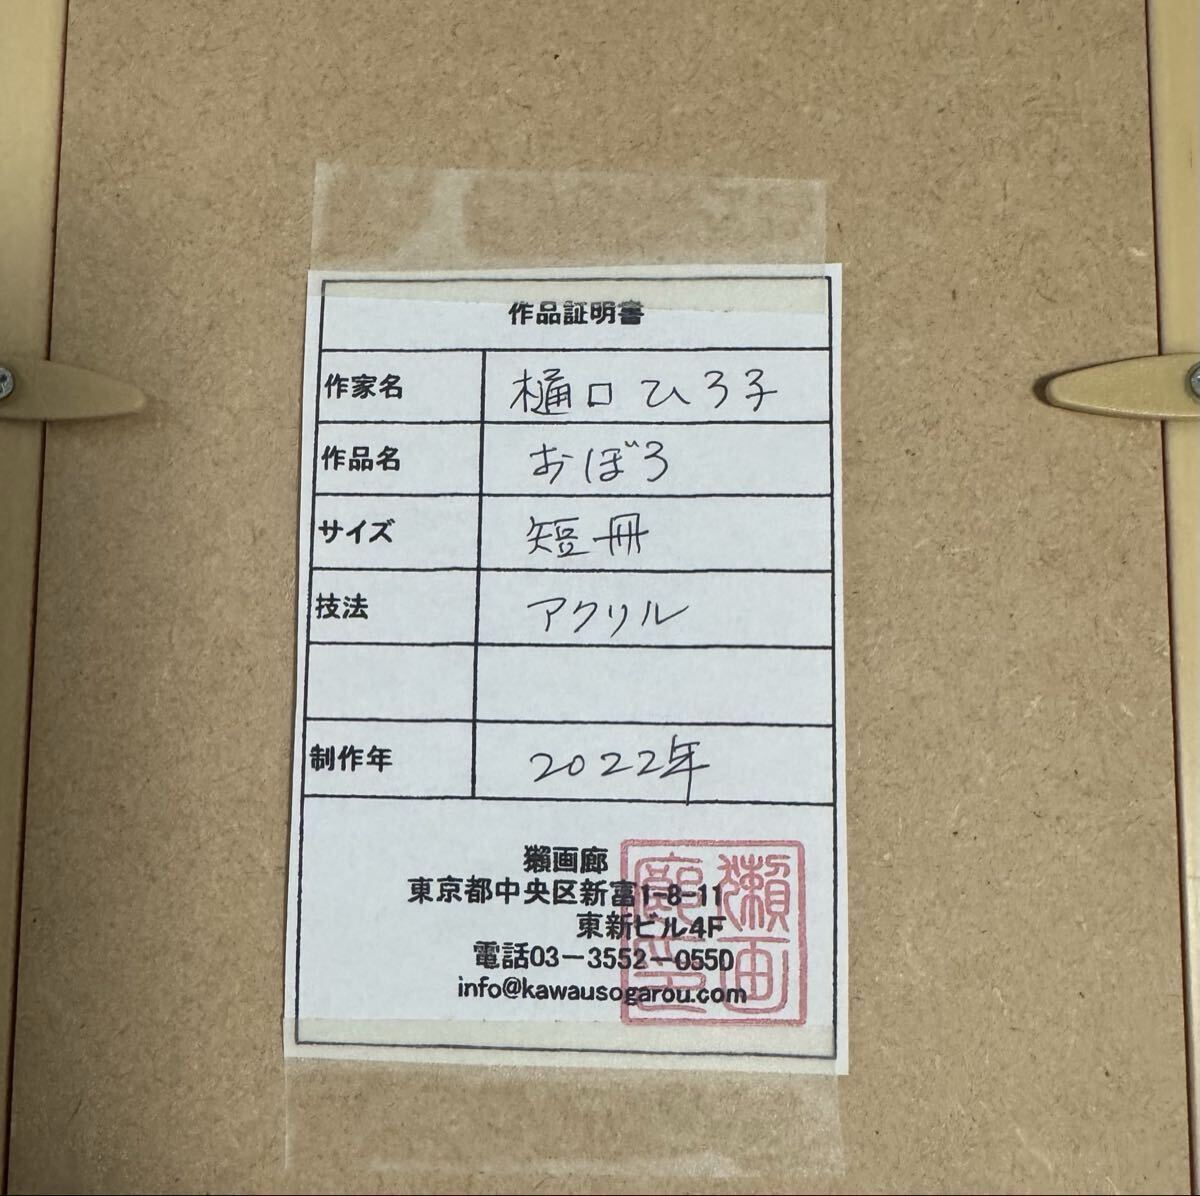 作品証明書
作家名 樋口ひろ子
作品名 おぼろ
サイズ 短冊
技法 アクリル
制作年 2022年
獺画廊
東京都中央区新富1-8-11
東新ビル4F
電話03-3552-0550
info@kawausogarou.com
獺画
廊印